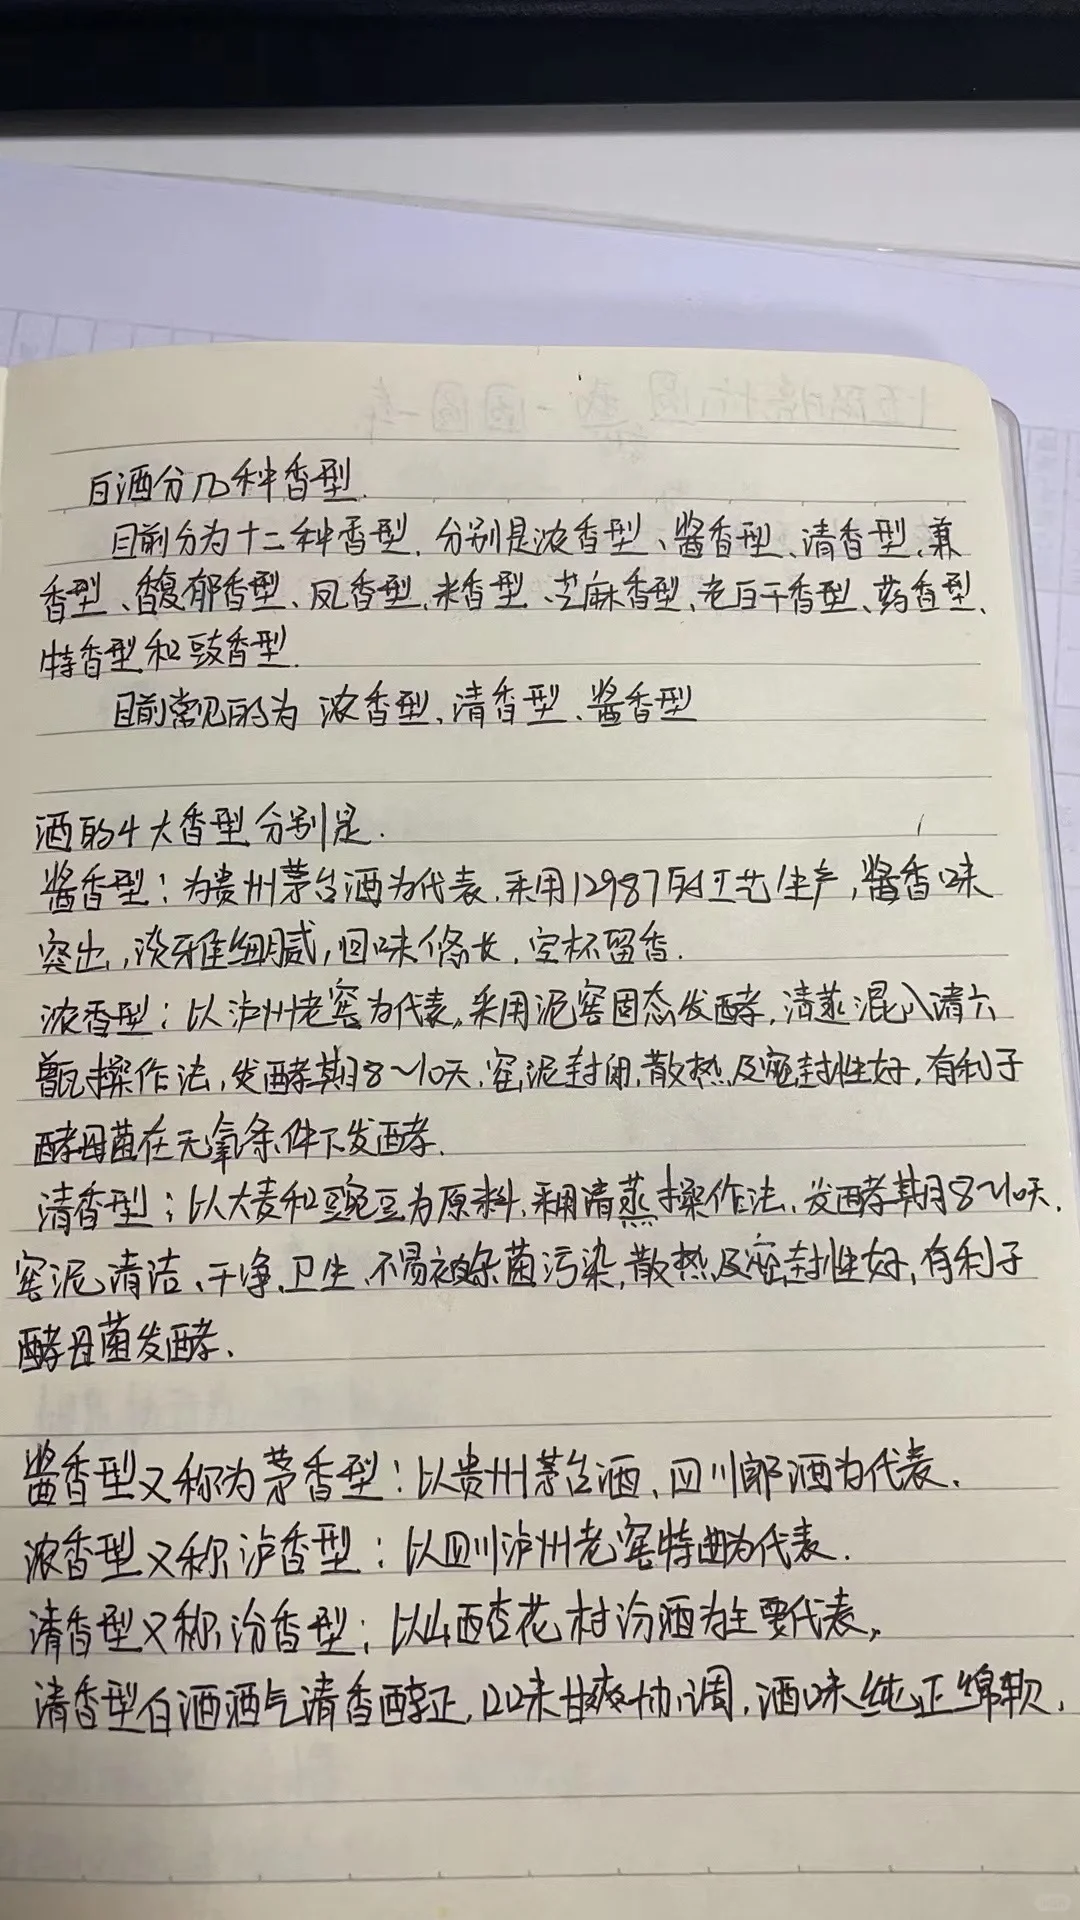 白酒分几种香型.
目前分为十二种香型,分别是浓香型、酱香型、清香型、兼
香型、馥郁香型、凤香型、米香型、芝麻香型、老白干香型、药香型、
特香型和豉香型.
目前常见的为浓香型、清香型、酱香型
酒的4大香型分别是.
酱香型:为贵州茅台酒为代表.采用12987的工艺生产,酱香味
突出,淡雅细腻,回味修长,空杯留香.
浓香型:以泸州老窖为代表,采用泥窖固态发酵,清蒸混入清六
甑操作法,发酵期8~10天,窖泥封闭,散热及密封性好,有利于
酵母菌在无氧条件下发酵.
清香型:以大麦和豌豆为原料,采用清蒸操作法,发酵期8~10天.
窖泥清洁、干净.卫生.不易被杂菌污染,散热及密封性好,有利于
酵母菌发酵.
酱香型又称为茅香型:以贵州茅台酒、四川郎酒为代表.
浓香型又称泸香型:以四川泸州老窖特曲为代表.
清香型又称汾香型:以山西杏花村汾酒为主要代表,
清香型白酒酒气清香醇正,口味甘爽协调,酒味纯正绵软.